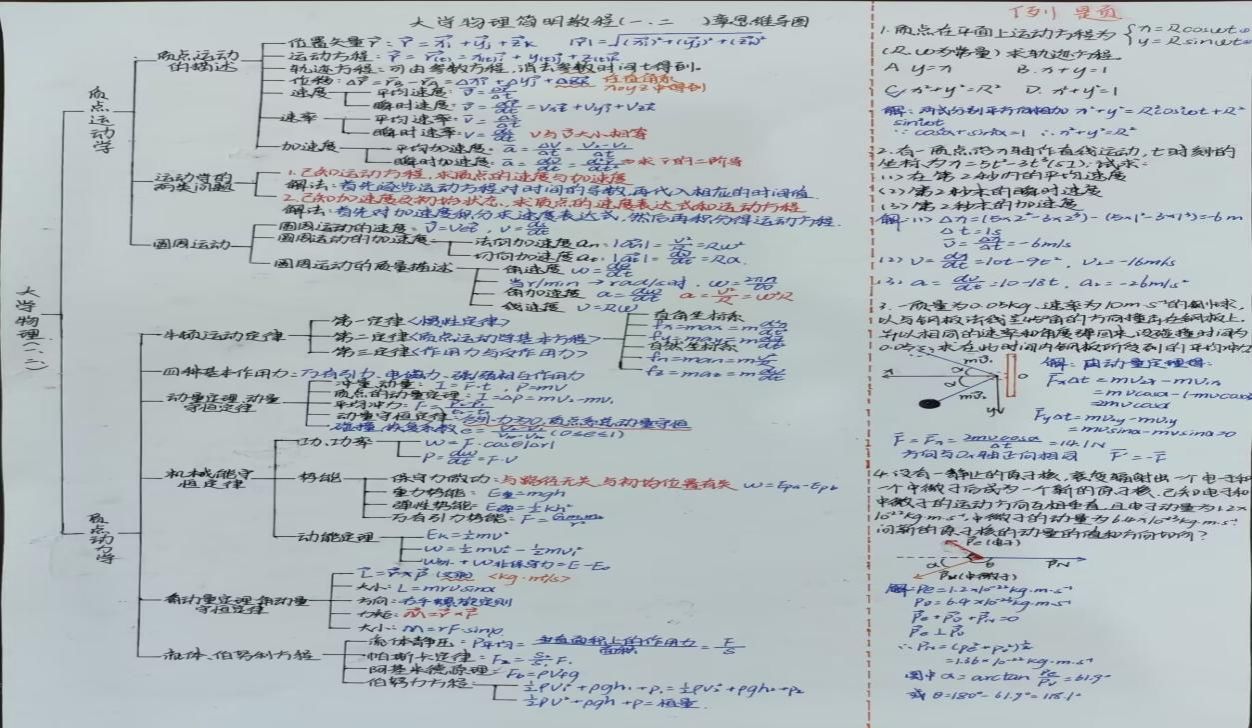 大学物理简明教程(一.二 )章思维导图
大学物理(一.二)
质点运动学
质点运动的描述
位置矢量r⃗: r⃗ = xi + yj + zk
运动方程: r⃗ = r⃗(t) = x(t)i + y(t)j + z(t)k
轨迹方程: 可由参数方程, 消去参数时间t得到。
位移:
在直角系
oxyz中得到
速度
平均速度: v⃗ = Δr⃗/Δt
瞬时速度: v⃗ = dr⃗/dt = Vxi + Vyj + Vzk
速率
平均速率: v̄ = Δs/Δt
瞬时速率: v = ds/dt v与v⃗大小相等
加速度
平均加速度:
瞬时加速度: 求r的二阶导
运动学的两类问题
1.已知运动方程, 求质点的速度与加速度
解法: 首先逐步运动方程对时间的导数, 再代入相应的时间值.
2.已知加速度及初始状态, 求质点的速度表达式和运动方程
解法: 首先对加速度积分求速度表达式, 然后再积分得运动方程.
圆周运动
圆周运动的速度:
圆周运动的加速度
法向加速度an: |an| = v²/R = Rω²
切向加速度at: |at| = dv/dt = Rα.
圆周运动的质量描述
角速度 ω = dθ/dt
当r/min → rad/s时, ω = 2πn/60
角加速度 α = dω/dt
线速度 v = Rω
质点动力学
牛顿运动定律
第一定律<惯性定律>
第二定律<质点运动学基本方程>
第三定律<作用力与反作用力>
直角坐标系
自然坐标系
四种基本作用力: 万有引力. 电磁力. 强.弱相互作用力
动量定理.动量守恒定律
冲量.动量: I = F·t , P = mv
质点的动量定理: I = ΔP = mv₂ - mv₁
平均冲力:
动量守恒定律: 合外力为0, 质点系总动量守恒
碰撞. 恢复系数 (0≤e≤1)
机械能守恒定律
功.功率
W = F·cosθ|Δr|
P = dw/dt = F·V
势能
保守力做功: 与路径无关, 与初始位置有关 W = Epa - Epb
重力势能: E重 = mgh
弹性势能: E弹 = ½kh²
万有引力势能:
动能定理
Ek = ½mv²
W = ½mv₂² - ½mv₁²
W外 + W非保守力 = E - E₀
角动量定理.角动量守恒定律
L⃗ = r⃗×p⃗ <kg·m²/s>
大小: L = mrvsinα
方向: 右手螺旋定则
力矩: M⃗ = r⃗×F⃗
大小: M = rFsinφ
流体.伯努利方程
流体静压: P平均 = 垂直面积上的作用力/面积 = F/S
帕斯卡定律: F₂ = S₂/S₁ F₁
阿基米德原理: F浮 = ρVg
伯努力方程
½ρv₁² + ρgh₁ + P₁ = ½ρv₂² + ρgh₂ + P₂
½ρv² + ρgh + P = 恒量.
1.质点在平面上运动方程为 {x = Rcosωt y = Rsinωt
(R, ω为常量) 求轨迹方程.
A y=x B. x+y=1
C, x²+y²=R² D. x²+y²=1
解: 两式分别平方相加 x²+y² = R²cos²ωt + R²
sin²ωt
∵ cos²x+sin²x=1 ∴ x²+y²=R²
2.有一质点沿x轴作直线运动, t时刻的
坐标为x = 5t² - 3t³ (SI); 试求:
(1) 在第2秒内的平均速度
(2) 第2秒末的瞬时速度
(3) 第2秒末的加速度
解: (1) Δx = (5×2² - 3×2³) - (5×1² - 3×1³) = -6m
Δt = 1s
v̄ = Δx/Δt = -6m/s
(2) v = dx/dt = 10t - 9t², v₂ = -16m/s
(3) a = dv/dt = 10 - 18t, a₂ = -26m/s²
3.一质量为0.05kg, 速率为10m·s⁻¹的钢球,
以与钢板法线呈45°角的方向撞击在钢板上,
并以相同的速率和角度弹回来, 设碰撞时间为
0.05s, 求在此时间内钢板所受到的平均冲力
解: 由动量定理得:
F̄xΔt = mv₂x - mv₁x
= mvcosα - (-mvcosα)
= 2mvcosα
F̄yΔt = mv₂y - mv₁y
= mvsinα - mvsinα = 0
F̄ = F̄x = 2mvcosα/Δt = 14.1N
方向与Ox轴正向相同 F̄' = -F̄
4.设有一静止的原子核, 衰变辐射出一个电子和
一个中微子后成为一个新的原子核. 已知电子和
中微子的运动方向互相垂直, 且电子动量为1.2×
10⁻²²kg·m·s⁻¹, 中微子的动量为6.4×10⁻²³kg·m·s⁻¹
问新的原子核的动量的值和方向如何?
Pe(电子)
α θ PN
Pν(中微子)
解: Pe = 1.2×10⁻²²kg·m·s⁻¹
Pν = 6.4×10⁻²³kg·m·s⁻¹
P⃗e + P⃗ν + P⃗N = 0
P⃗e ⊥ P⃗ν
∴ PN = (Pe² + Pν²)^½
= 1.36×10⁻²²kg·m·s⁻¹
图中α = arctan Pe/Pν = 61.9°
或θ = 180° - 61.9° = 118.1°